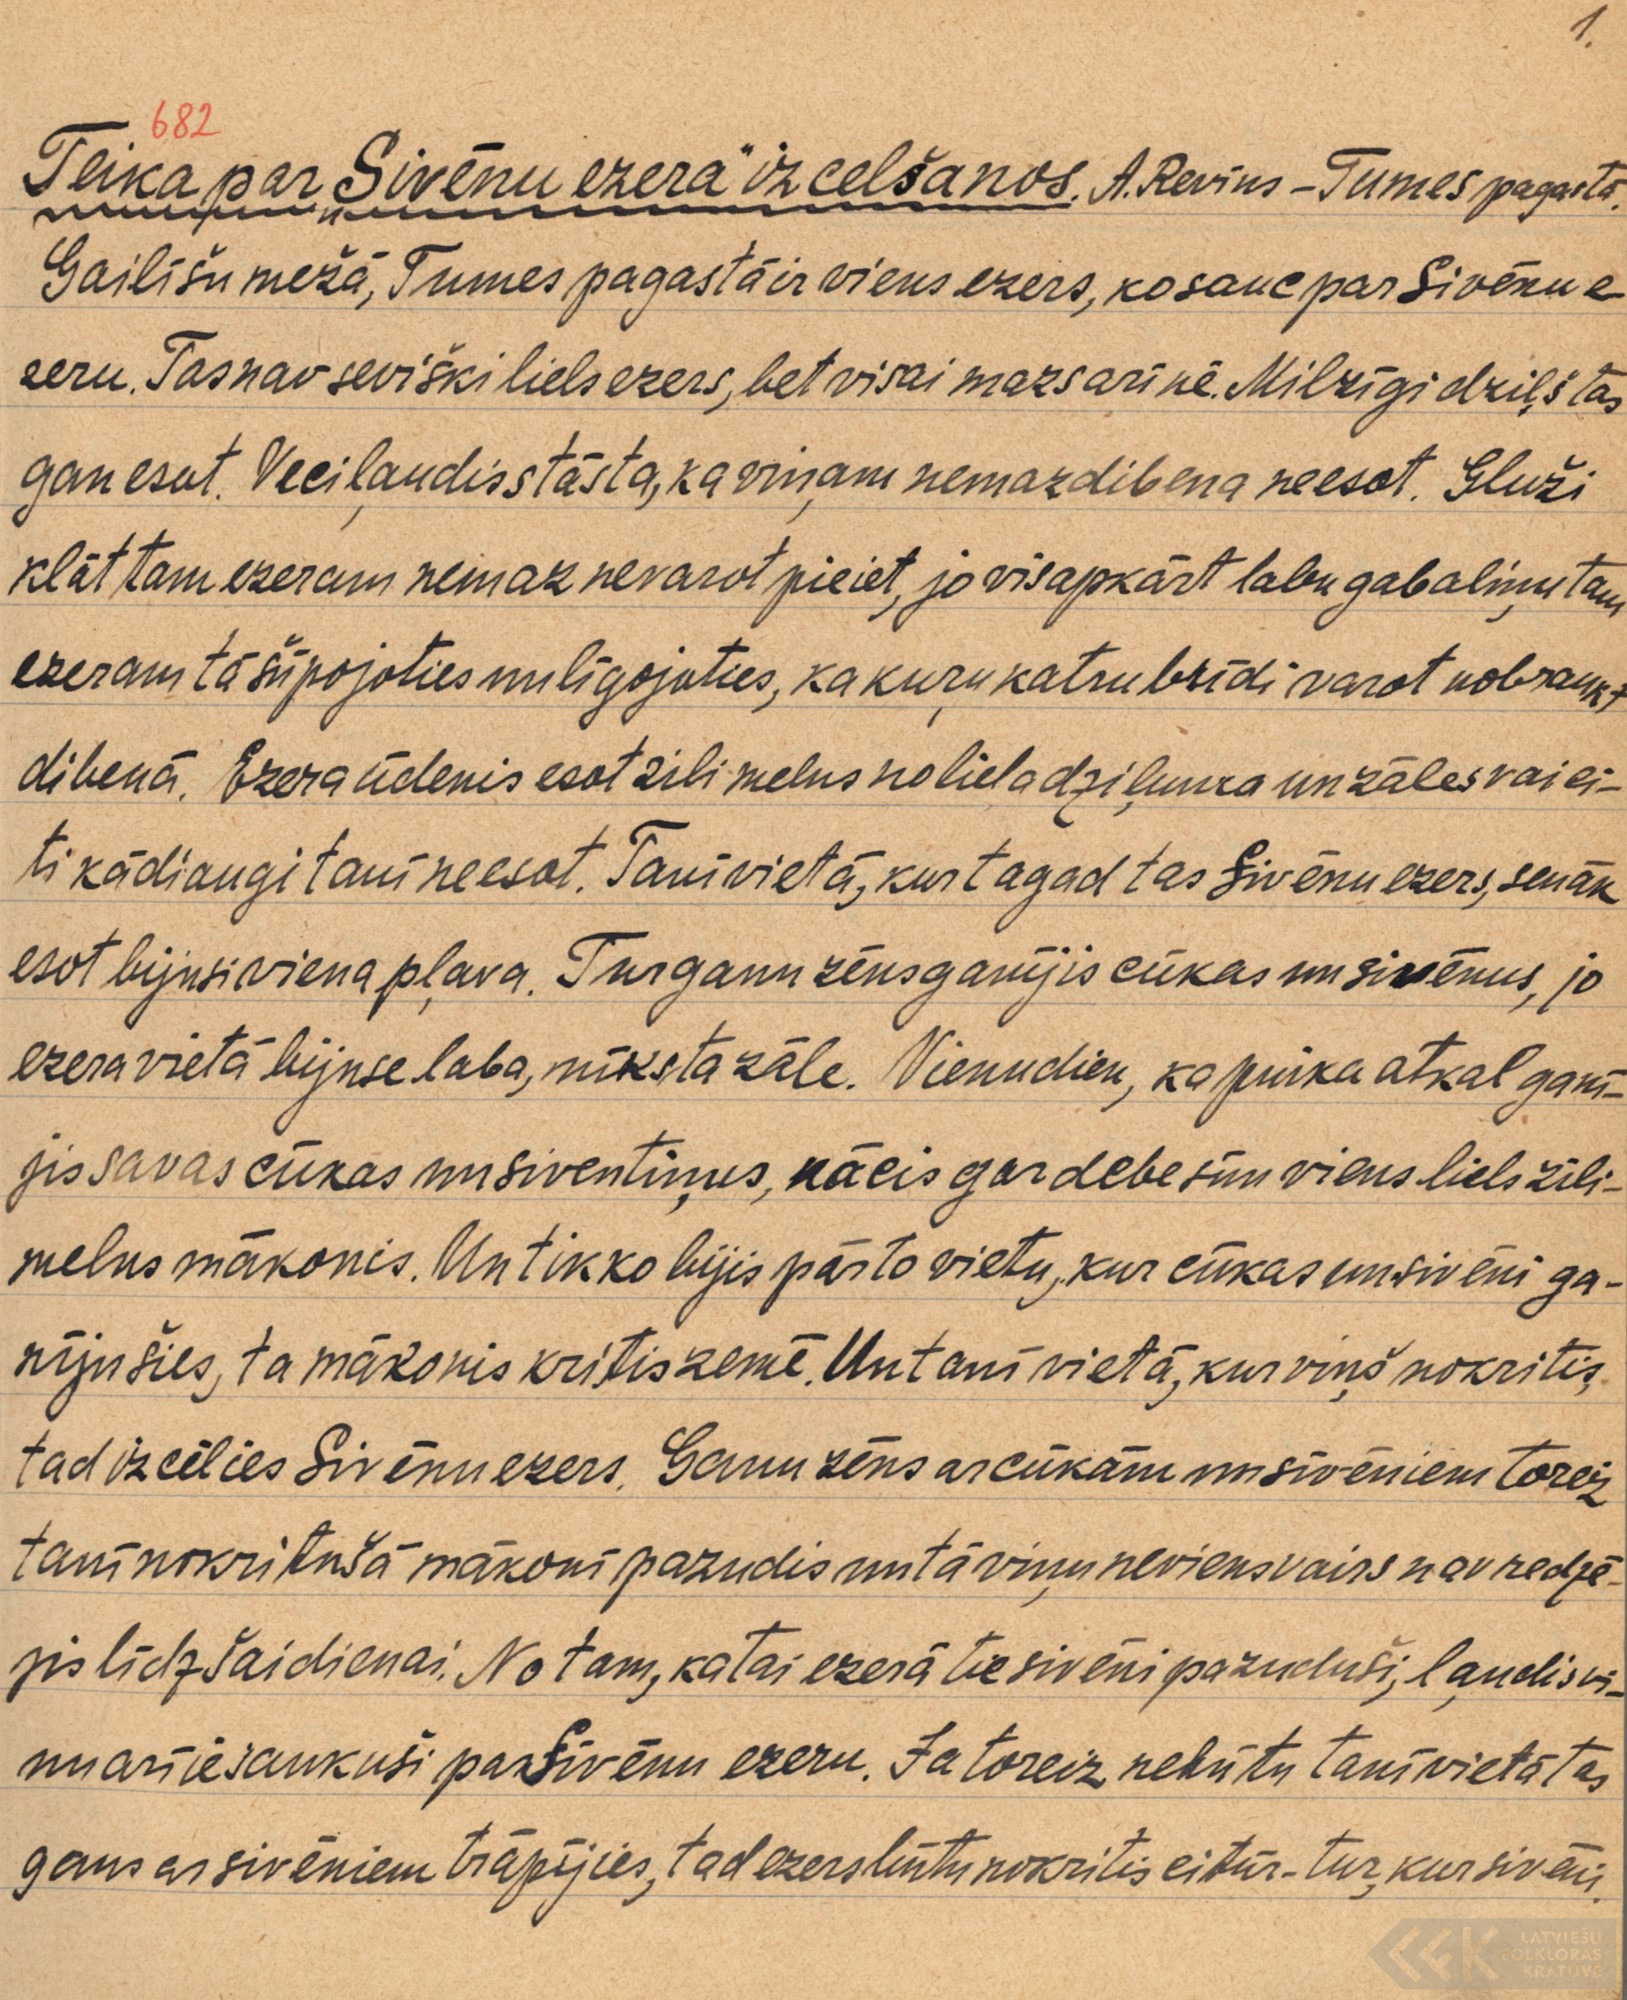 1.
682
Teika par „Sivēnu ezera" izcelšanos. A. Revins – Tumes pagastā.
Gailīšu mežā, Tumes pagastā ir viens ezers, ko sauc par Sivēnu e-
zeru. Tas nav seviški liels ezers, bet visai mazs arī nē. Milzīgi dziļš tas
gan esot. Veci ļaudis stāsta, ka viņam nemaz dibena neesot. Gluži
klāt tam ezeram nemaz nevarot pieiet, jo visapkārt labu gabaliņu tam
ezeram tā šūpojoties un līgojoties, ka kuŗu katru brīdi varot nobraukt
dibenā. Ezera ūdenis esot zili melns no liela dziļuma un zāles vai ci-
ti kādi augi tanī neesot. Tanī vietā, kur tagad tas Sivēnu ezers, senāk
esot bijusi viena pļava. Tur ganu zēns ganījis cūkas un sivēnus, jo
ezera vietā bijuse laba, mīksta zāle. Vienu dien, ka puika atkal ganī-
jis savas cūkas un siventiņus, nācis gar debesīm viens liels zili-
melns mākonis. Un tikko bijis pār to vietu, kur cūkas un sivēni ga-
nījušies, ta mākonis kritis zemē. Un tanī vietā, kur viņš nokritis,
tad izcēlies Sivēnu ezers. Ganu zēns ar cūkām un sivēniem toreiz
tanī nokritušā mākonī pazudis un tā viņu neviens vairs nav redzē-
jis līdz šai dienai. No tam, ka tai ezerā tie sivēni pazuduši, ļaudis vi-
ņu arī iesaukuši par Sivēnu ezeru. Ja toreiz nebūtu tanī vietā tas
gans ar sivēniem trāpījies, tad ezers būtu nokritis citur – tur, kur sivēni.
LATVIEŠU
FOLKLORAS
KRĀTUVE